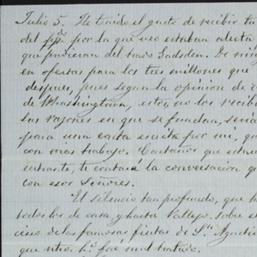 Julio 5. He tenido el gusto de recibir tu
del ppdo. por la que veo estaban alerta
que pudieran del trato Gadsden. De nin
en ofertas para los tres millones que
despues, pues segun la opinión de
de Washingtown, estos, no los recibi
las razones en que se fundan, seria
para una carta escrita por mi, qu
con más trabajo.
entrante, te contará la conversacion q
con esos Señores.
El silencio tan profundo, que h
todos los de casa, y hasta Vallejo, sobre el
ciso de las famosas fiestas de Sn. Agustin
que ntro. Dn. José